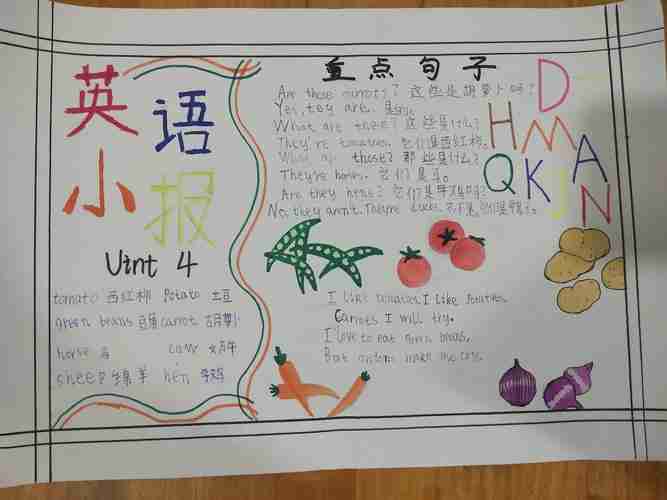 英
语
小
报
Uint 4
tomato 西红柿 Potato 土豆
green beans 豆角 carrot 胡萝卜
horse 马 cow 奶牛
sheep 绵羊 hen 母鸡
重点句子
Are these 这些是胡萝卜吗?
Yes, tey are. 是的。
What are these? 这些是什么?
They're tomatoes. 它们是西红柿。
What are those? 那些是什么?
They're horses. 它们是马。
Are they hens? 它们是母鸡吗?
No, they aren't. They're ducks. 不是,它们是鸭子。
D
H M A
Q K J N
I like tomatoes. I like Potatoes.
Carrots I will try.
I love to eat green beans.
But onions make me cry.